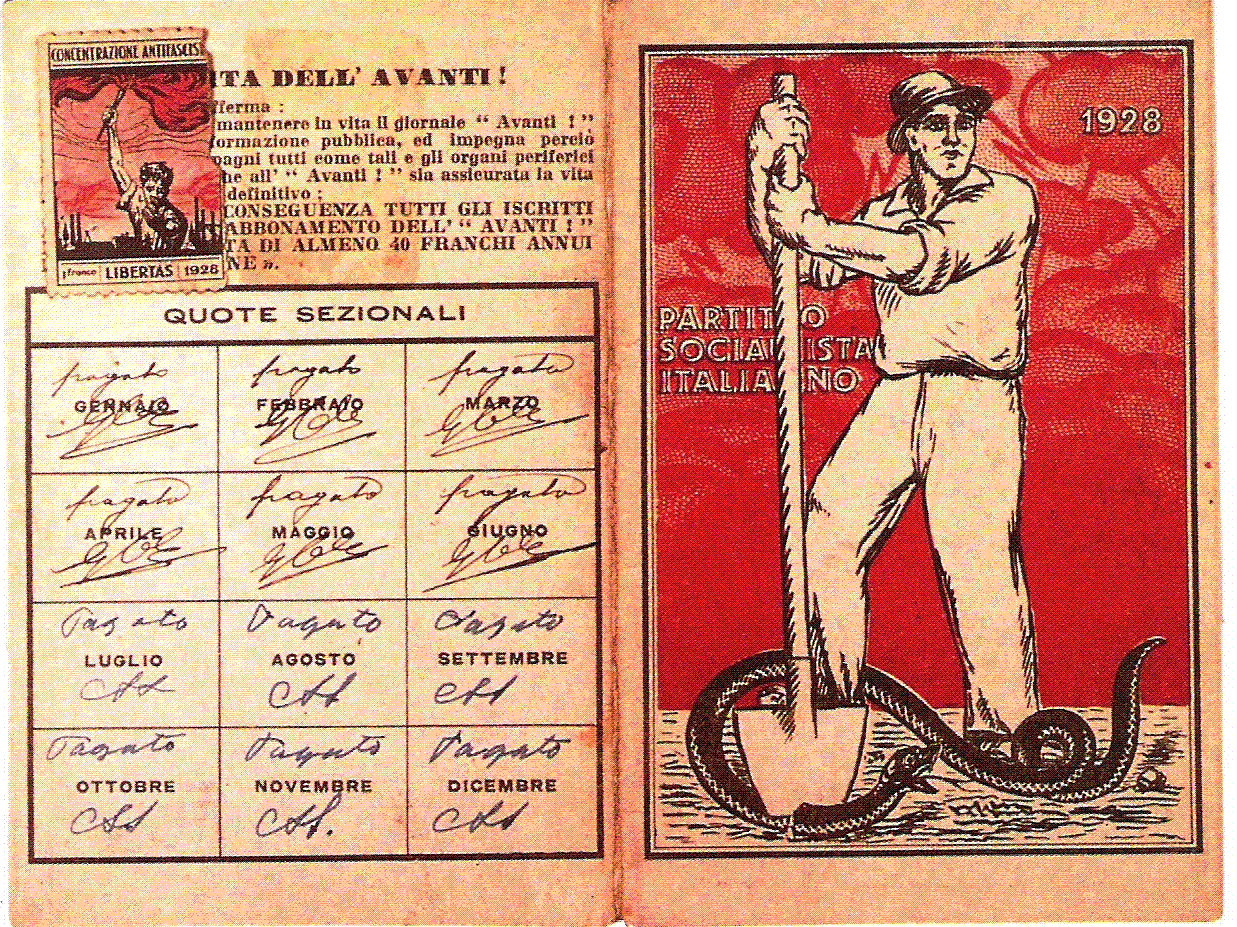 CONCENTRAZIONE ANTIFASCIS
1 franco LIBERTAS 1928
ITA DELL' AVANTI !
fferma :
mantenere in vita il giornale “ Avanti ! ”
formazione pubblica, ed impegna perciò
pagni tutti come tali e gli organi periferici
he all' “ Avanti ! ” sia assicurata la vita
definitivo :
CONSEGUENZA TUTTI GLI ISCRITTI
ABBONAMENTO DELL' “ AVANTI ! ”
TA DI ALMENO 40 FRANCHI ANNUI
NE ».
QUOTE SEZIONALI
pagato pagato pagato
GENNAIO FEBBRAIO MARZO
pagato pagato pagato
APRILE MAGGIO GIUGNO
Pagato Pagato Pagato
LUGLIO AGOSTO SETTEMBRE
Pagato Pagato Pagato
OTTOBRE NOVEMBRE DICEMBRE
1928
PARTITO
SOCIALISTA
ITALIANO